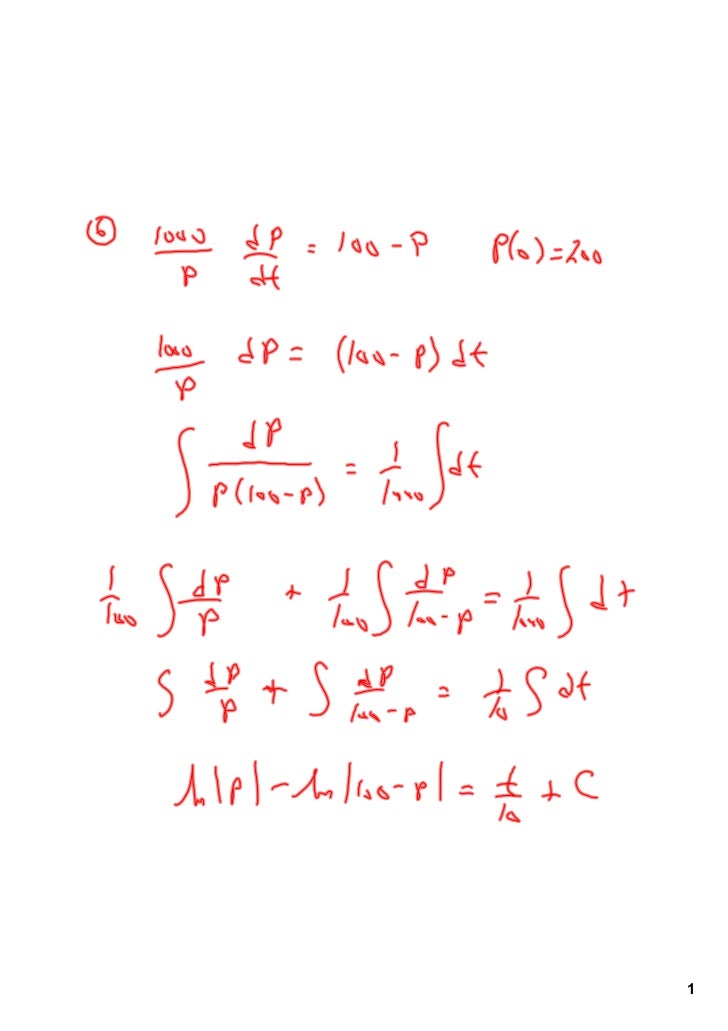 ⑥ 1000/P dP/dt = 100 - P P(0) = 200
1000/P dP = (100 - P) dt
∫ dP/(P(100-P)) = 1/1000 ∫ dt
1/100 ∫ dP/P + 1/100 ∫ dP/(100-P) = 1/1000 ∫ dt
∫ dP/P + ∫ dP/(100-P) = 1/10 ∫ dt
ln|P| - ln|100-P| = t/10 + C
1